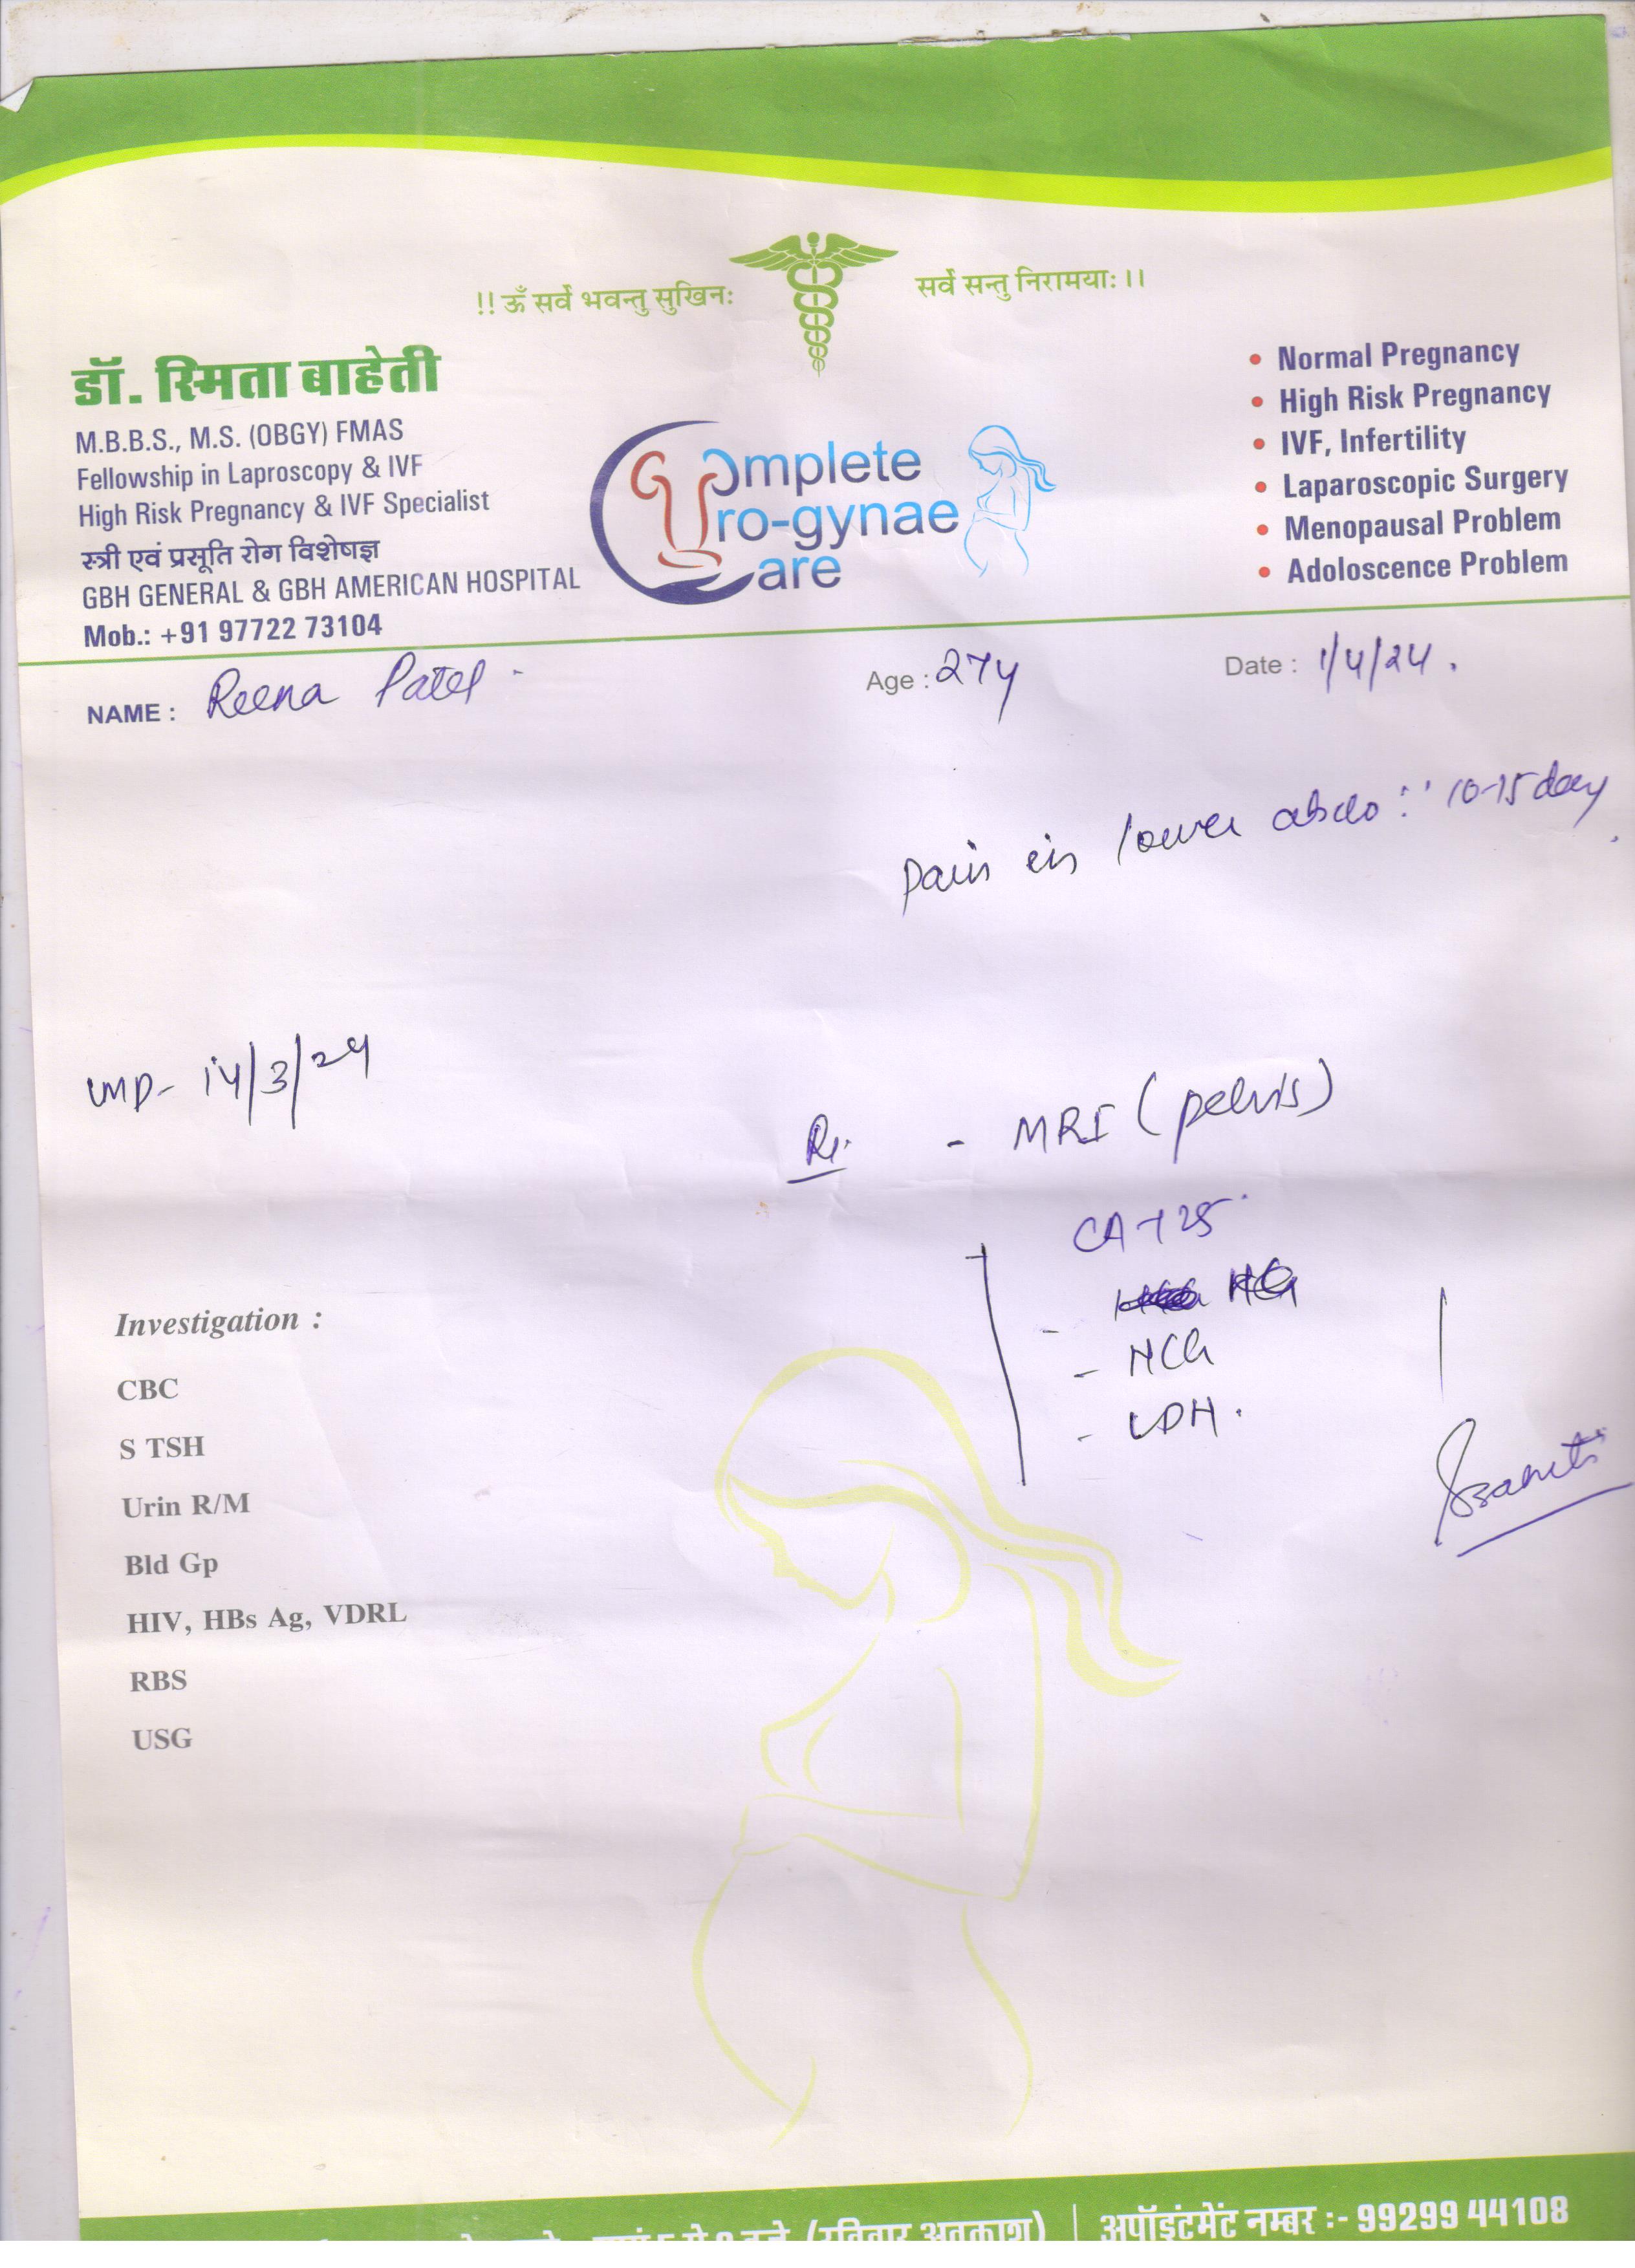 !! ॐ सर्वे भवन्तु सुखिनः सर्वे सन्तु निरामयाः ।।
डॉ. स्मिता बाहेती
M.B.B.S., M.S. (OBGY) FMAS
Fellowship in Laproscopy & IVF
High Risk Pregnancy & IVF Specialist
स्त्री एवं प्रसूति रोग विशेषज्ञ
GBH GENERAL & GBH AMERICAN HOSPITAL
Mob.: +91 97722 73104
Complete
Uro-gynae
Care
• Normal Pregnancy
• High Risk Pregnancy
• IVF, Infertility
• Laparoscopic Surgery
• Menopausal Problem
• Adoloscence Problem
NAME : Reena Patel Age : 27y Date : 1/4/24.
Pain in lower abdo 10-15 day
LMP- 14/3/24
Rx - MRI (pelvis)
CA-125
- HCG
- LDH.
Investigation :
CBC
S TSH
Urin R/M
Bld Gp
HIV, HBs Ag, VDRL
RBS
USG
(रविवार अवकाश) | अपॉइंटमेंट नम्बर :- 99299 44108